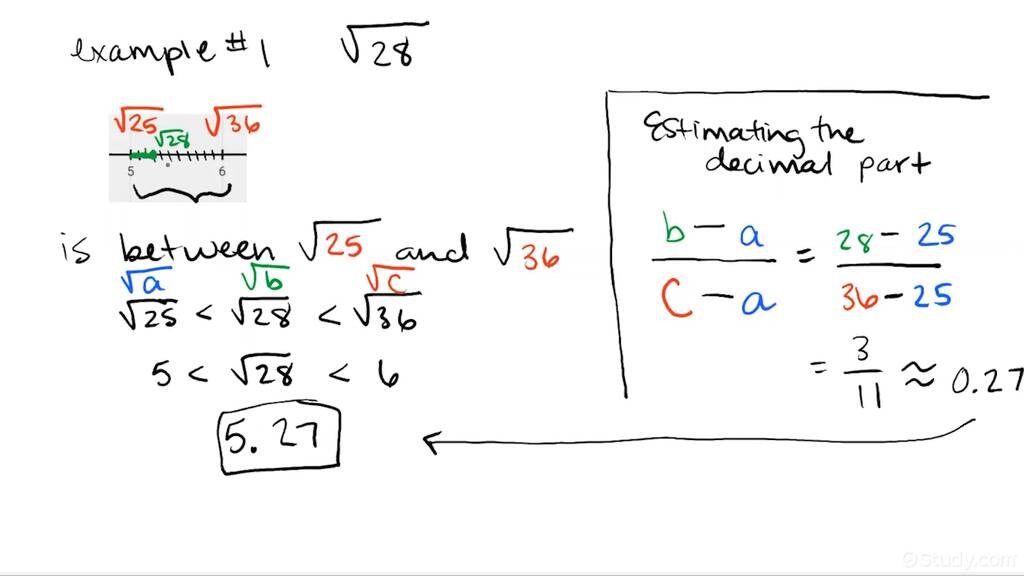 example #1 √28
√25 √36
√28
5 6
is between √25 and √36
√a √b √c
√25 < √28 < √36
5 < √28 < 6
5.27
Estimating the
decimal part
b - a / c - a = 28 - 25 / 36 - 25
= 3/11 ≈ 0.27
©Study.com